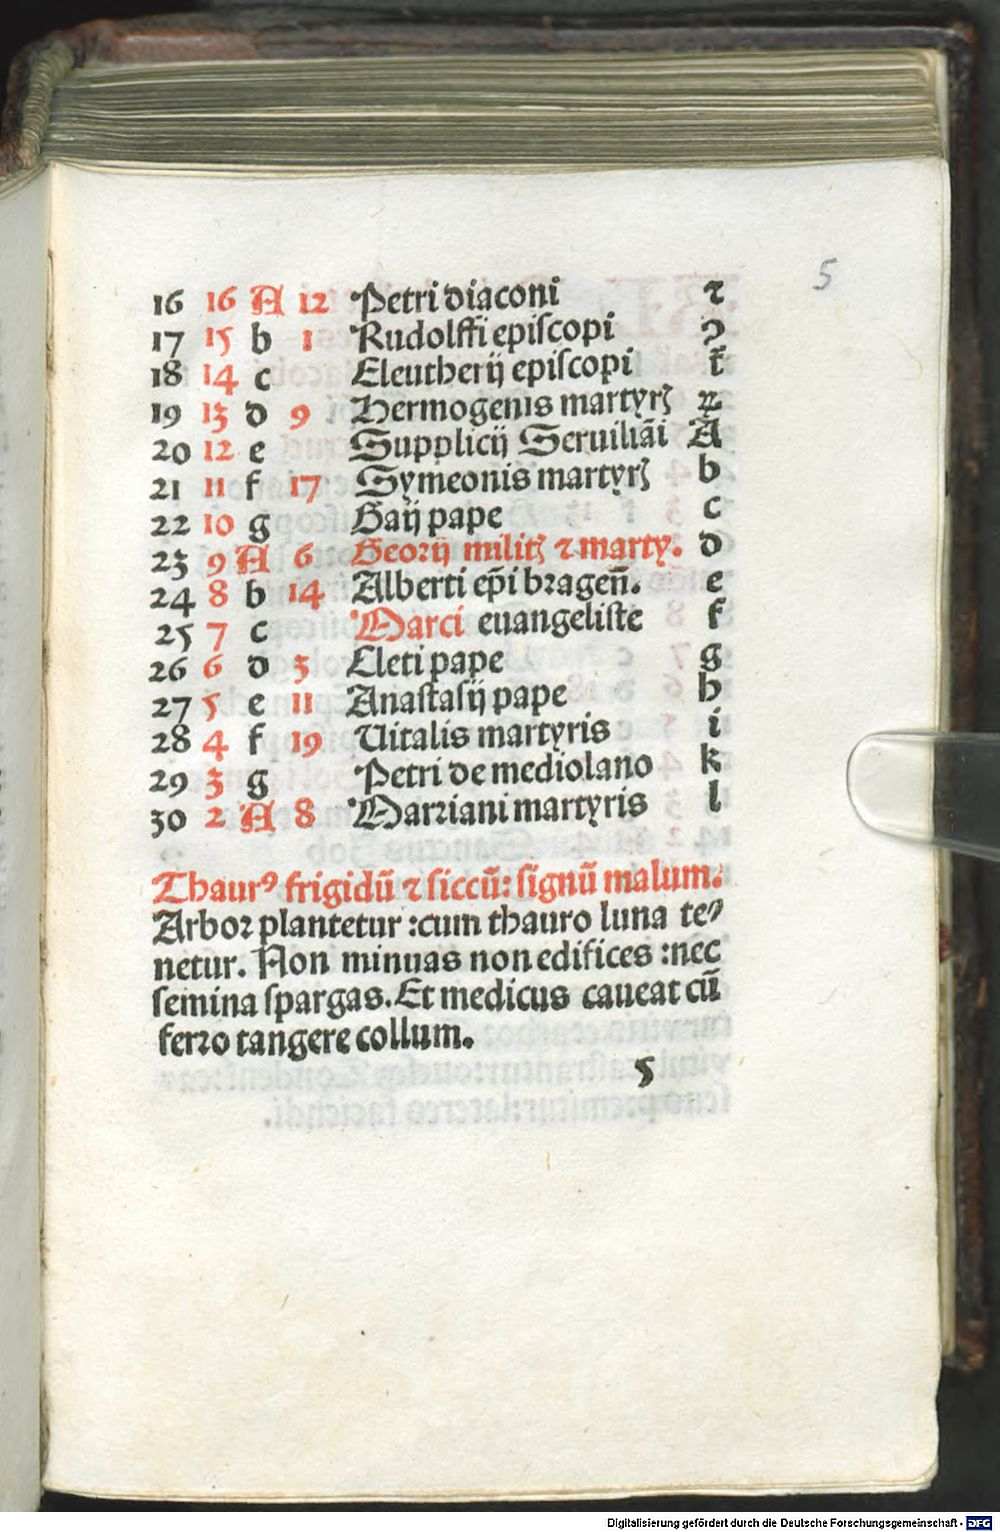 5
16 16 A 12 Petri diaconi ⁊
17 15 b 1 Rudolffi epiſcopi ꝯ
18 14 c Eleutherij epiſcopi
19 13 d 9 Hermogenis martyrꝫ
20 12 e Supplicij Seruiliāi A
21 11 f 17 Symeonis martyrꝫ b
22 10 g Gaij pape c
23 9 A 6 Georij militꝫ ⁊ marty. d
24 8 b 14 Alberti ep̄i bꝛagen̄. e
25 7 c Marci euangeliſte f
26 6 d 3 Cleti pape g
27 5 e 11 Anaſtaſij pape h
28 4 f 19 Uitalis martyris i
29 3 g Petri de mediolano k
30 2 A 8 Marꝛiani martyris l
Thaurꝰ frigidū ⁊ ſiccū: ſignū malum.
Arboꝛ plantetur :cum thauro luna te⸗
netur. Non minuas non edifices :nec
ſemina ſpargas. Et medicus caueat cū
ferꝛo tangere collum.
5
Digitalisierung gefördert durch die Deutsche Forschungsgemeinschaft - DFG